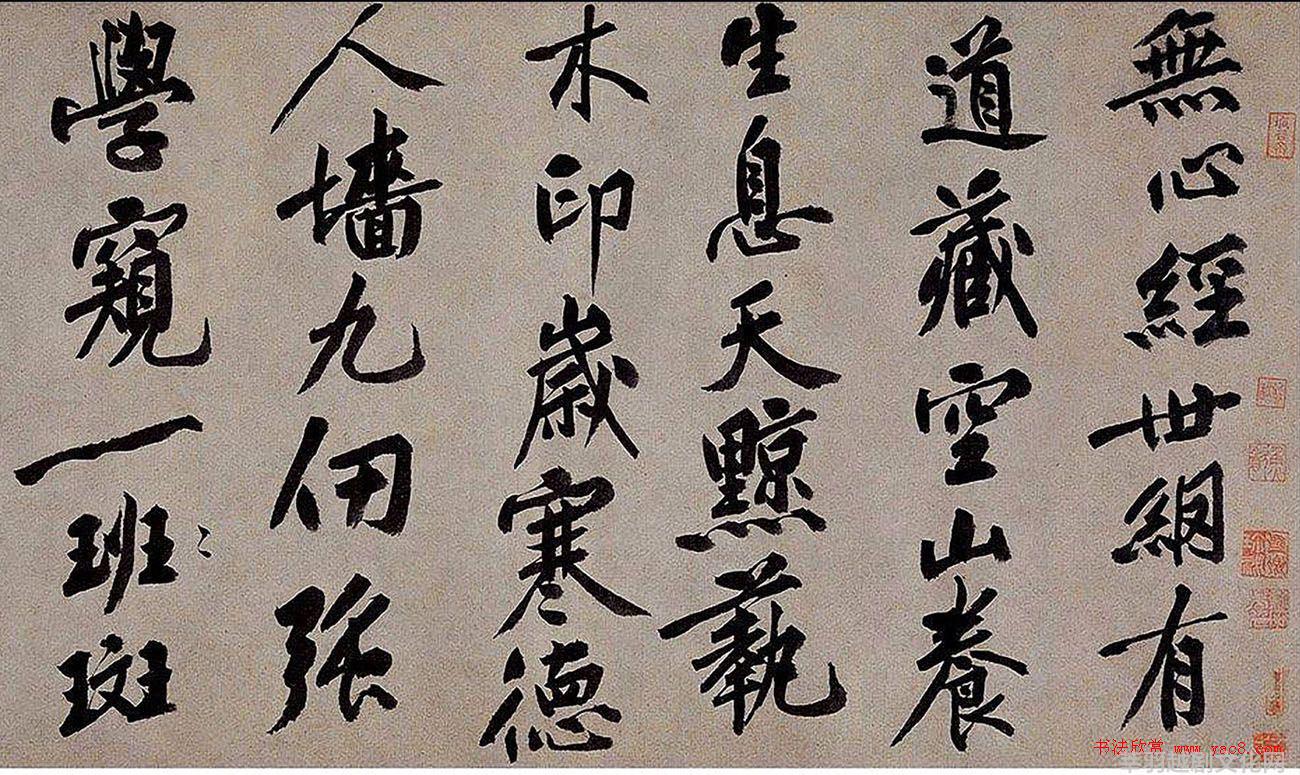 無心經世網有
道藏空山養
生息天黥蓺
木印歲寒德
人墻九仞強
學窺一班〻
斑
书法欣赏 www.yac8.com